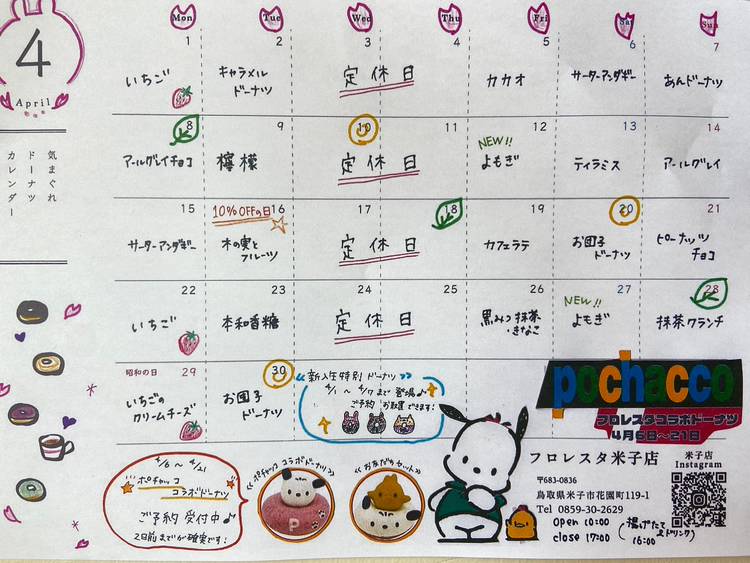 4
April
気まぐれ
ドーナツ
カレンダー
Mon Tue Wed Thu Fri Sat Sun
1 2 3 4 5 6 7
いちご
キャラメル
ドーナツ
定休日
カカオ
サーターアンダギー
あんドーナツ
8 9 10 11 12 13 14
アールグレイチョコ
檸檬
定休日
NEW!!
よもぎ
ティラミス
アールグレイ
15 10%OFFの日 16 17 18 19 20 21
サーターアンダギー
木の実と
フルーツ
定休日
カフェラテ
お団子
ドーナツ
ピーナッツ
チョコ
22 23 24 25 26 27 28
いちご
本和香糖
定休日
黒みつ抹茶
・きなこ
NEW!!
よもぎ
抹茶クランチ
昭和の日 29 30
いちごの
クリームチーズ
お団子
ドーナツ
新入生特別 ドーナツ
4/1 〜 4/17 まで 登場♪
ご予約 お取置できます!
pochacco
フロレスタコラボドーナツ
4月6日〜21日
4/6 〜 4/21
ポチャッコ
コラボドーナツ
ご予約 受付中♪
2日前までが確実です!
ポチャッコ コラボドーナツ
P
お友だちセット
フロレスタ米子店
〒683-0836
鳥取県米子市花園町119-1
Tel 0859-30-2629
open 10:00
close 17:00
(揚げたて&ドリンク)
16:00
米子店
Instagram